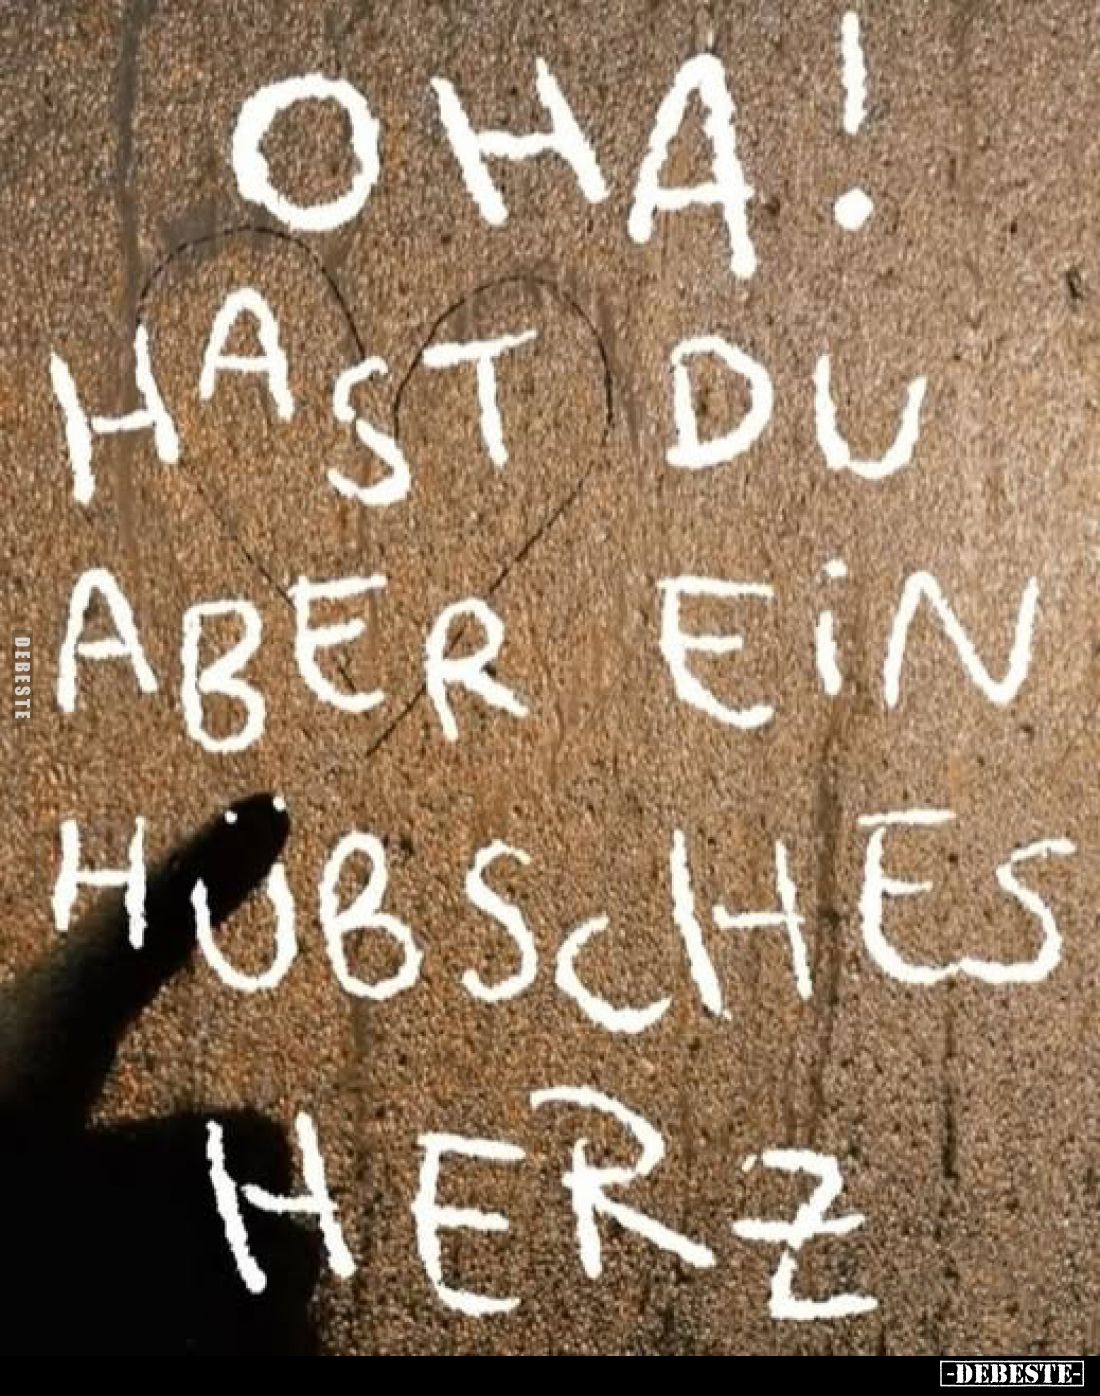 OHA!
HAST DU
ABER EiN
HÜBSCHES
HERZ
DEBESTE
-DEBESTE-